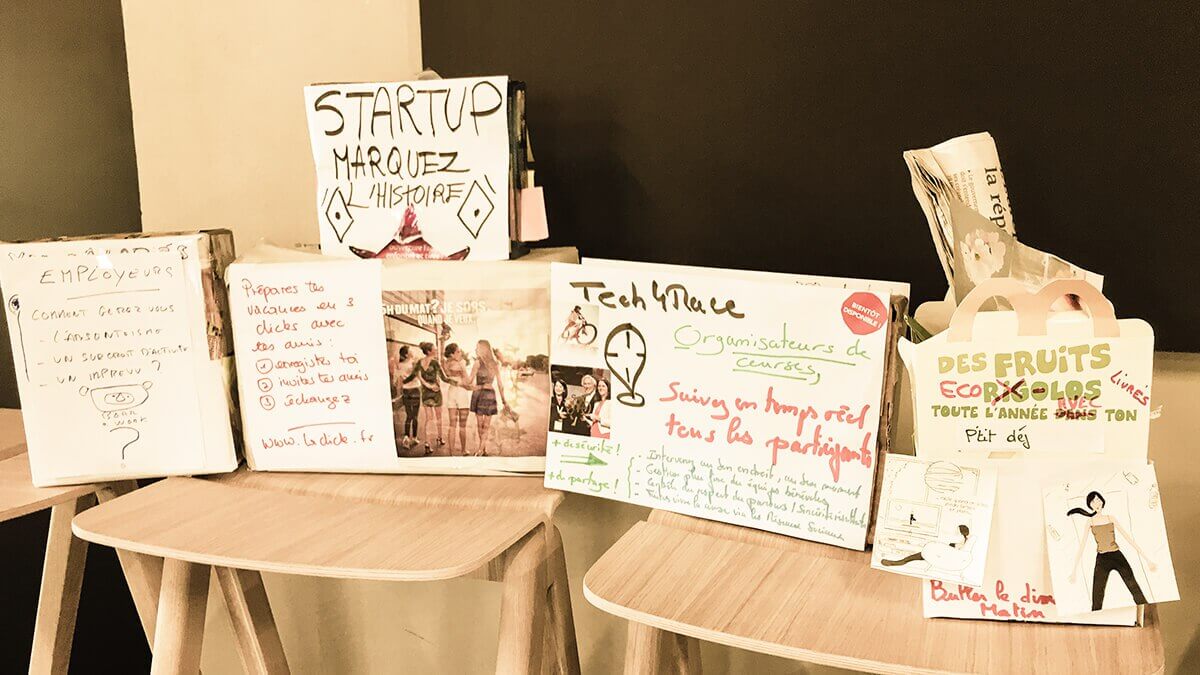 EMPLOYEURS
COMMENT GEREZ VOUS
- L'ABSENTEISME
- UN SURCROIT D'ACTIVITE
- UN IMPREVU ?
STARTUP
MARQUEZ
L'HISTOIRE
Prépares tes
vacances en 3
clicks avec
tes amis :
① enregistres toi
② invites tes amis
③ échangez
5H DU MAT? JE SORS,
QUAND JE VEUX.
Tech4Race
BIENTÔT
DISPONIBLE !
Organisateurs de
courses,
Suivez en temps réel
tous les participants
+ de sécurité !
+ de partage !
- Intervenez au bon endroit, au bon moment
- Gestion plus fine des équipes bénévoles
- Faites vivre la course via les Réseaux Sociaux
la rép
DES FRUITS
ECORIGOLOS LIVRÉS
AVEC
TOUTE L'ANNÉE DANS TON
P'tit déj
Matin